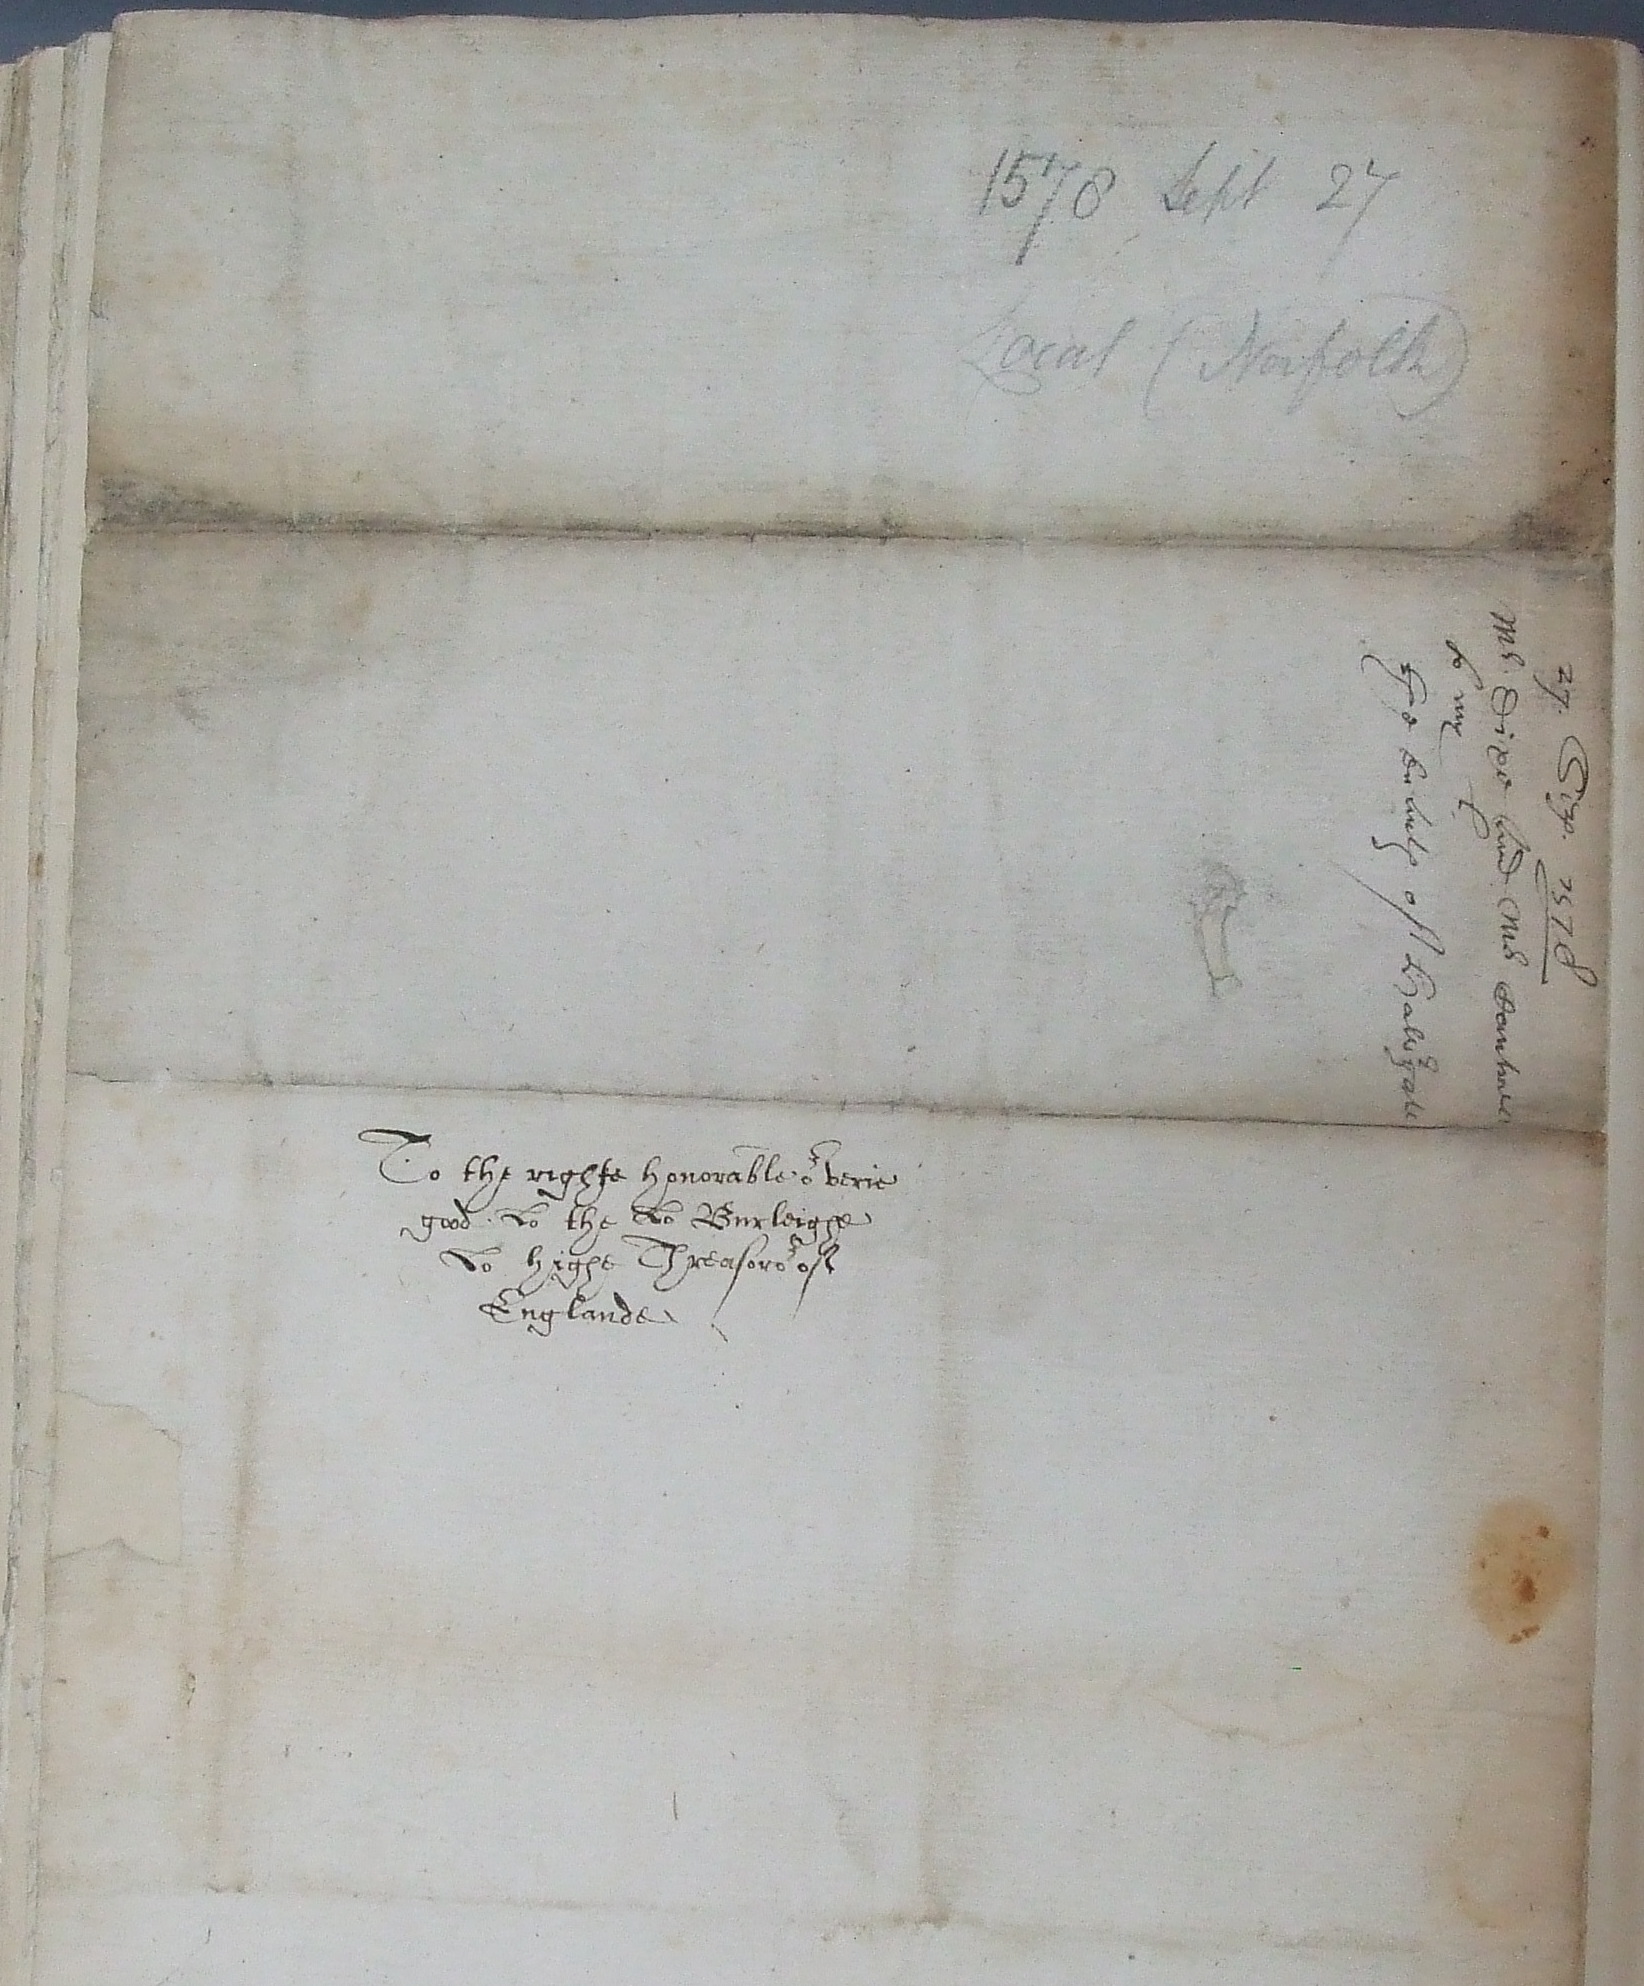 1578 Sept 27
Local (Norfolk)
27. Sept. 1578
Mr. Dixe and Mr Cantrell
to my L.
The Bulk of
To the righte honorable or verie
good Lo the Lo Burleighe
Lo highe Threasoror of
Englande